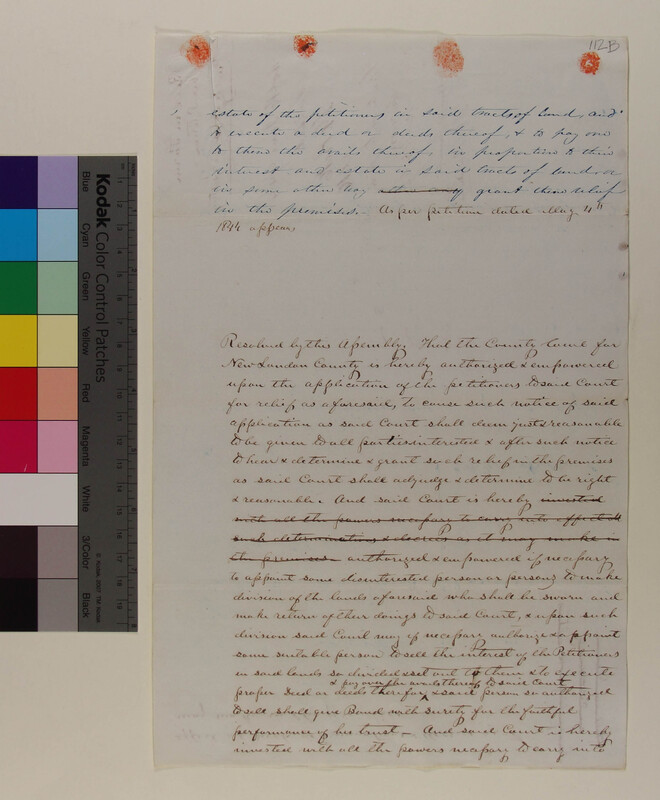 112B
estate of the petitioners in said tracts of land, and
to execute a deed or deeds thereof, & to pay over
to them the avails thereof, in proportion to their
interest and estate in said tracts of land or
in some other way grant them relief
in the premises. As per petition dated May 4"
1844 appears
Resolved by this Assembly, That the County Court for
New London County is hereby authorized & empowered
upon the application of the petitioners to said Court
for relief as aforesaid, to cause such notice of said
application as said Court shall deem just & reasonable
to be given to all parties interested & after such notice
to hear & determine & grant such relief in the premises
as said Court shall adjudge & determine to be right
& reasonable. And said Court is hereby invested
with all the powers necessary to carry into effect all
such determinations & decrees as it may make in
the premises authorized & empowered if necessary
to appoint some disinterested person or persons to make
division of the lands aforesaid who shall be sworn and
make return of their doings to said Court, & upon such
division said Court may if necessary authorize & appoint
some suitable person to sell the interest of the Petitioners
in said lands so divided & set out to them & to execute
& pay over the avails thereof to said Court
proper deed or deeds therefor & said person so authorized
to sell shall give Bond with surety for the faithful
performance of his trust - And said Court is hereby
invested with all the powers necessary to carry into
Kodak Color Control Patches
Blue
Cyan
Green
Yellow
Red
Magenta
White
3/Color
Black